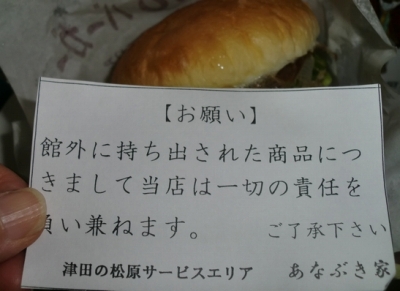 【お願い】
館外に持ち出された商品につ
きまして当店は一切の責任を
負い兼ねます。 ご了承下さい
津田の松原サービスエリア あなぶき家